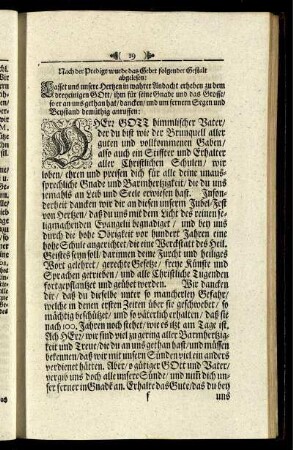 19
Nach der Predigt wurde das Gebet folgender Gestalt
abgelesen:
Lasset uns unsere Hertzen in wahrer Andacht erheben zu dem
dreyeinigen GOtt/ ihm für seine Gnade und das Grosse/
so er an uns gethan hat/ dancken/ und um fernern Segen und
Beystand demüthig anruffen:
O HErr GOTT himmlischer Vater/
der du bist wie der Brunquell aller
guten und vollkommenen Gaben/
also auch ein Stiffter und Erhalter
aller Christlichen Schulen/ wir
loben/ ehren und preisen dich für alle deine unaus-
sprechliche Gnade und Barmhertzigkeit/ die du uns
jemahls an Leib und Seele erwiesen hast. Inson-
derheit dancken wir dir an diesen unserm Jubel-Fest
von Hertzen/ daß du uns mit dem Licht des reinen se-
ligmachenden Evangelii begnadiget/ und bey uns
durch die hohe Obrigkeit vor hundert Jahren eine
hohe Schule angerichtet/ die eine Werckstatt des Heil.
Geistes seyn soll/ darinnen deine Furcht und heiliges
Wort gelehret/ gerechte Gesetze/ freye Künste und
Sprachen getrieben/ und alle Christliche Tugenden
fortgepflantzet und geübet werden. Wir dancken
dir/ daß du dieselbe unter so mancherley Gefahr/
welche in denen ersten Zeiten über sie geschwebet/ so
mächtig beschützet/ und so väterlich erhalten/ daß sie
nach 100. Jahren noch stehet/ wie es itzt am Tage ist.
Ach HErr/ wir sind viel zu gering aller Barmhertzig-
keit und Treue/ die du an uns gethan hast/ und müssen
bekennen/ daß wir mit unsern Sünden viel ein anders
verdienet hätten. Aber/ o gütiger GOtt und Vater/
vergib uns doch alle unsere Sünde/ und nim dich un-
ser ferner in Gnaden an. Erhalte das Gute/ das du bey
f
uns